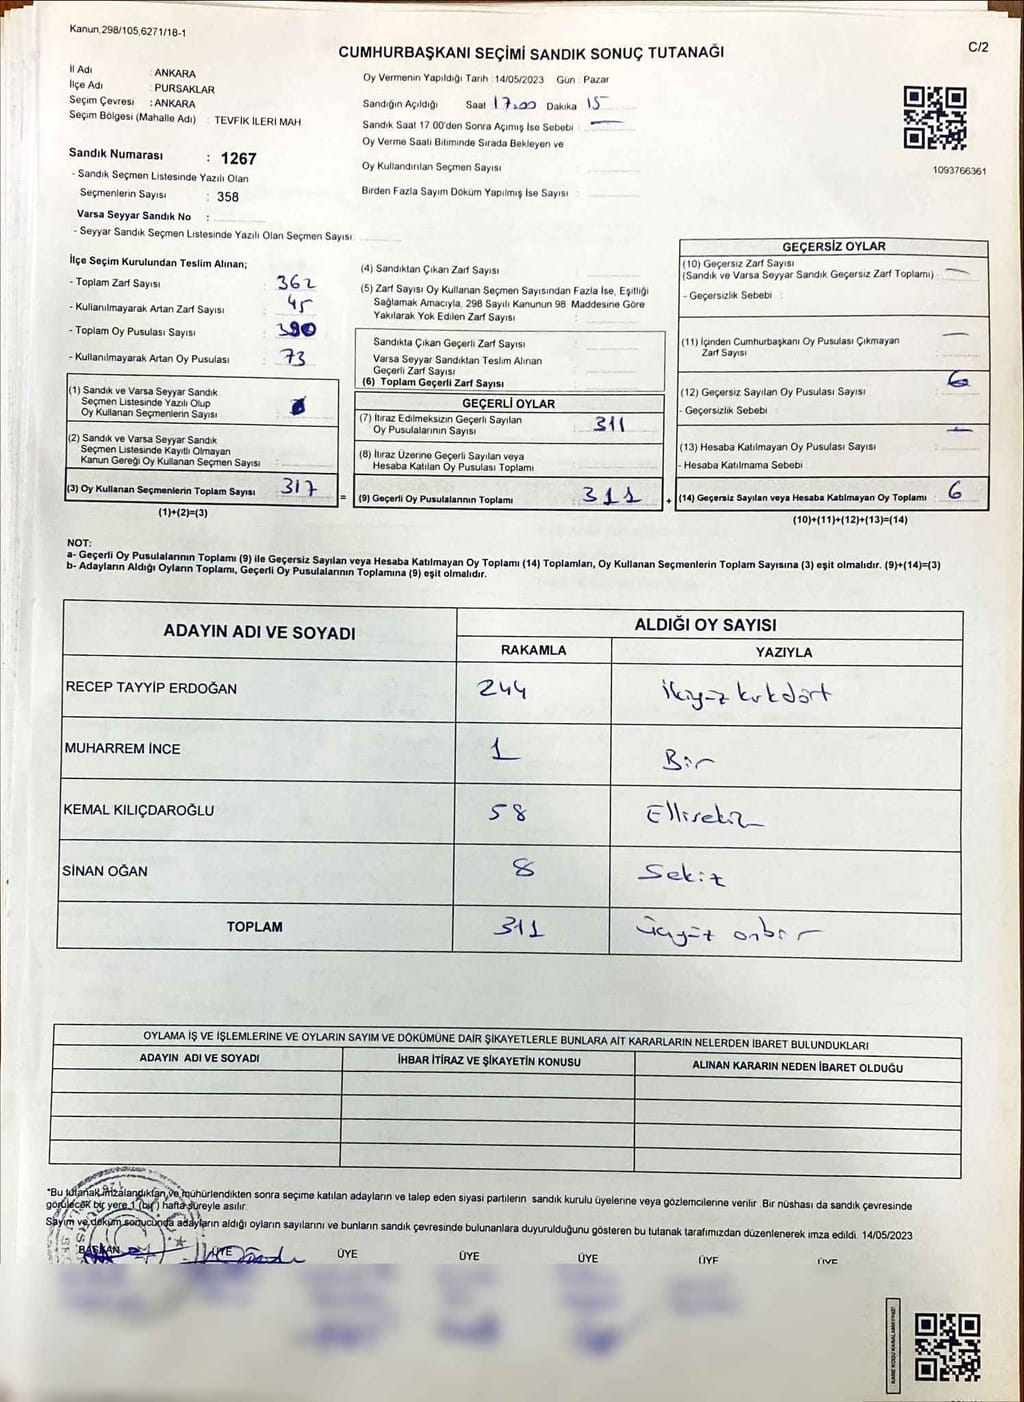 Kanun,298/105,6271/18-1
C/2
CUMHURBAŞKANI SEÇİMİ SANDIK SONUÇ TUTANAĞI
İl Adı : ANKARA
İlçe Adı : PURSAKLAR
Seçim Çevresi : ANKARA
Seçim Bölgesi (Mahalle Adı) : TEVFİK İLERİ MAH.
Sandık Numarası : 1267
- Sandık Seçmen Listesinde Yazılı Olan
Seçmenlerin Sayısı : 358
Varsa Seyyar Sandık No :
- Seyyar Sandık Seçmen Listesinde Yazılı Olan Seçmen Sayısı
Oy Vermenin Yapıldığı Tarih : 14/05/2023 Gün : Pazar
Sandığın Açıldığı Saat 17.00 Dakika 15
Sandık Saat 17.00'den Sonra Açımış İse Sebebi : —
Oy Verme Saati Bitiminde Sırada Bekleyen ve
Oy Kullandırılan Seçmen Sayısı
Birden Fazla Sayım Döküm Yapılmış İse Sayısı :
1093766361
İlçe Seçim Kurulundan Teslim Alınan;
- Toplam Zarf Sayısı : 362
- Kullanılmayarak Artan Zarf Sayısı : 45
- Toplam Oy Pusulası Sayısı : 390
- Kullanılmayarak Artan Oy Pusulası : 73
(1) Sandık ve Varsa Seyyar Sandık
Seçmen Listesinde Yazılı Olup
Oy Kullanan Seçmenlerin Sayısı
(2) Sandık ve Varsa Seyyar Sandık
Seçmen Listesinde Kayıtlı Olmayan
Kanun Gereği Oy Kullanan Seçmen Sayısı
(3) Oy Kullanan Seçmenlerin Toplam Sayısı 317
(1)+(2)=(3)
(4) Sandıktan Çıkan Zarf Sayısı
(5) Zarf Sayısı Oy Kullanan Seçmen Sayısından Fazla İse, Eşitliği
Sağlamak Amacıyla, 298 Sayılı Kanunun 98. Maddesine Göre
Yakılarak Yok Edilen Zarf Sayısı
Sandıkta Çıkan Geçerli Zarf Sayısı
Varsa Seyyar Sandıktan Teslim Alınan
Geçerli Zarf Sayısı
(6) Toplam Geçerli Zarf Sayısı
GEÇERLİ OYLAR
(7) İtiraz Edilmeksizin Geçerli Sayılan
Oy Pusulalarının Sayısı 311
(8) İtiraz Üzerine Geçerli Sayılan veya
Hesaba Katılan Oy Pusulası Toplamı
= (9) Geçerli Oy Pusulalarının Toplamı 311 +
GEÇERSİZ OYLAR
(10) Geçersiz Zarf Sayısı
(Sandık ve Varsa Seyyar Sandık Geçersiz Zarf Toplamı) : —
- Geçersizlik Sebebi :
(11) İçinden Cumhurbaşkanı Oy Pusulası Çıkmayan —
Zarf Sayısı
(12) Geçersiz Sayılan Oy Pusulası Sayısı 6
- Geçersizlik Sebebi
(13) Hesaba Katılmayan Oy Pusulası Sayısı —
- Hesaba Katılmama Sebebi
(14) Geçersiz Sayılan veya Hesaba Katılmayan Oy Toplamı : 6
(10)+(11)+(12)+(13)=(14)
NOT:
a- Geçerli Oy Pusulalarının Toplamı (9) ile Geçersiz Sayılan veya Hesaba Katılmayan Oy Toplamı (14) Toplamları, Oy Kullanan Seçmenlerin Toplam Sayısına (3) eşit olmalıdır. (9)+(14)=(3)
b- Adayların Aldığı Oyların Toplamı, Geçerli Oy Pusulalarının Toplamına (9) eşit olmalıdır.
ADAYIN ADI VE SOYADI
ALDIĞI OY SAYISI
RAKAMLA YAZIYLA
RECEP TAYYİP ERDOĞAN 244 ikiyüz kırkdört
MUHARREM İNCE 1 Bir
KEMAL KILIÇDAROĞLU 58 Ellisekiz
SİNAN OĞAN 8 Sekiz
TOPLAM 311 üçyüz onbir
OYLAMA İŞ VE İŞLEMLERİNE VE OYLARIN SAYIM VE DÖKÜMÜNE DAİR ŞİKAYETLERLE BUNLARA AİT KARARLARIN NELERDEN İBARET BULUNDUKLARI
ADAYIN ADI VE SOYADI İHBAR İTİRAZ VE ŞİKAYETİN KONUSU ALINAN KARARIN NEDEN İBARET OLDUĞU
*Bu tutanak imzalandıktan ve mühürlendikten sonra seçime katılan adayların ve talep eden siyasi partilerin sandık kurulu üyelerine veya gözlemcilerine verilir. Bir nüshası da sandık çevresinde
görülecek bir yere 1 (bir) hafta süreyle asılır.
Sayım ve döküm sonucunda adayların aldığı oyların sayılarını ve bunların sandık çevresinde bulunanlara duyurulduğunu gösteren bu tutanak tarafımızdan düzenlenerek imza edildi. 14/05/2023
BAŞKAN ÜYE ÜYE ÜYE ÜYE ÜYE ÜYE